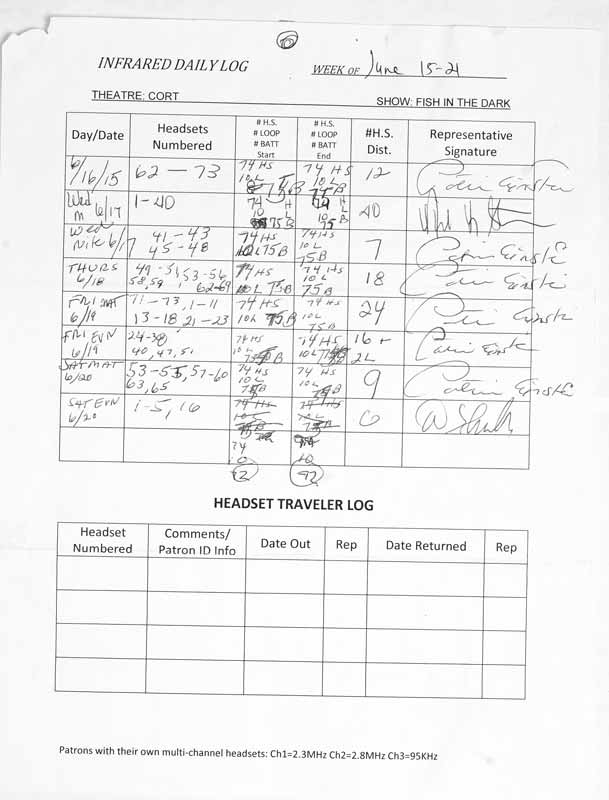 INFRARED DAILY LOG WEEK OF June 15-21
THEATRE: CORT SHOW: FISH IN THE DARK
Day/Date Headsets Numbered # H.S. # LOOP # BATT Start # H.S. # LOOP # BATT End #H.S. Dist. Representative Signature
6/16/15 62 - 73 74 HS 10 L 75 B 74 HS 10 L 75 B 12
Wed M 6/17 1-40 74 H 10 L 75 B 74 H 10 L 75 40
WED Nite 6/17 41-43 45-48 74 HS 10L 75B 74 HS 10 L 75B 7
THURS 6/18 53-56 58,59 62-69 74 HS 10L 75B 74 HS 10 L 75B 18
FRI MAT 6/19 71-73, 1-11 13-18 21-23 74 HS 10L 75B 74 HS 10L 75B 24
FRI EVN 6/19 24-38 40, 47, 51 74 HS 10L 75B 74 HS 10L 75B 16 + 2L
SAT MAT 6/20 53-55, 57-60 63, 65 74 HS 10 L 75B 74 HS 10 L 75B 9
SAT EVN 6/20 1-5, 16 74 HS 74 HS 6
74
0 10
92
HEADSET TRAVELER LOG
Headset Numbered Comments/ Patron ID Info Date Out Rep Date Returned Rep
Patrons with their own multi-channel headsets: Ch1=2.3MHz Ch2=2.8MHz Ch3=95KHz